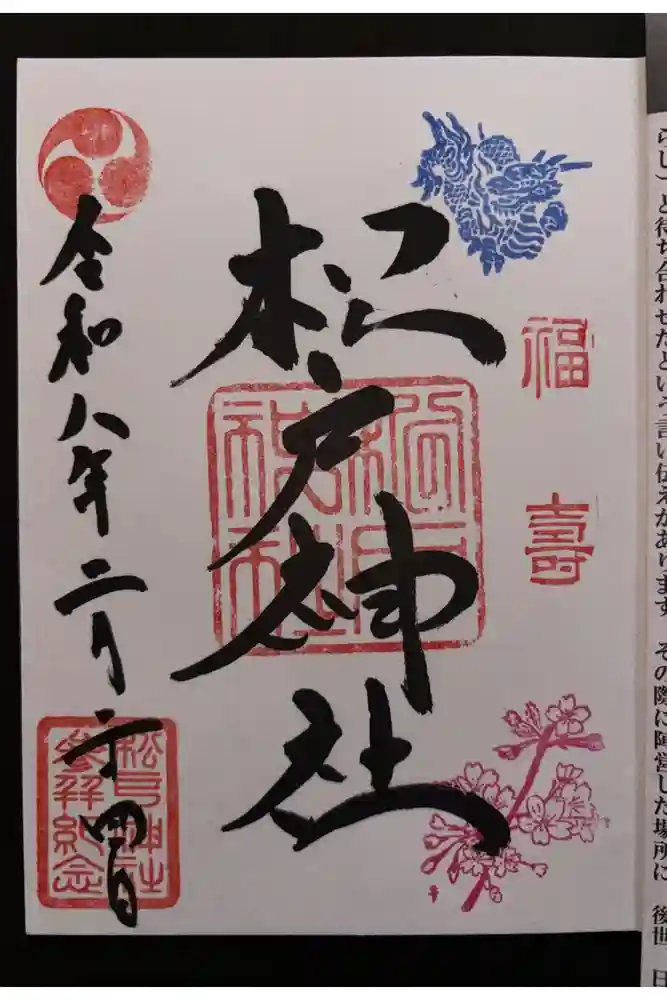 らし）と待ち合わせたという言い伝えがあります
その際に陣営した場所に
後世
福壽
松戸神社
松戸神社
令和八年二月二十四日
松戸神社
参拝紀念